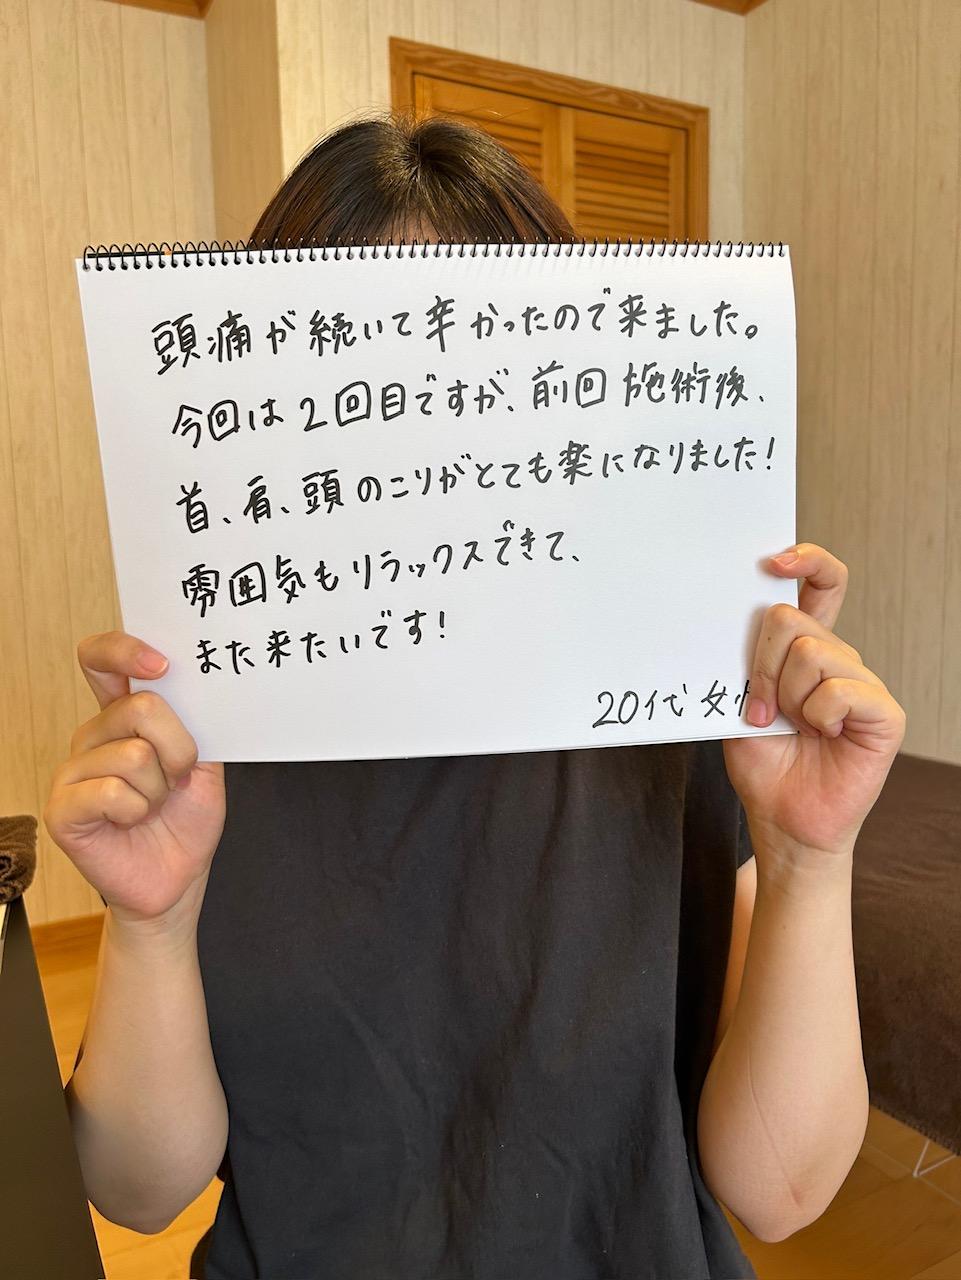 頭痛が続いて辛かったので来ました。
今回は2回目ですが、前回施術後、
首、肩、頭のこりがとても楽になりました!
雰囲気もリラックスできて、
また来たいです!
20代 女